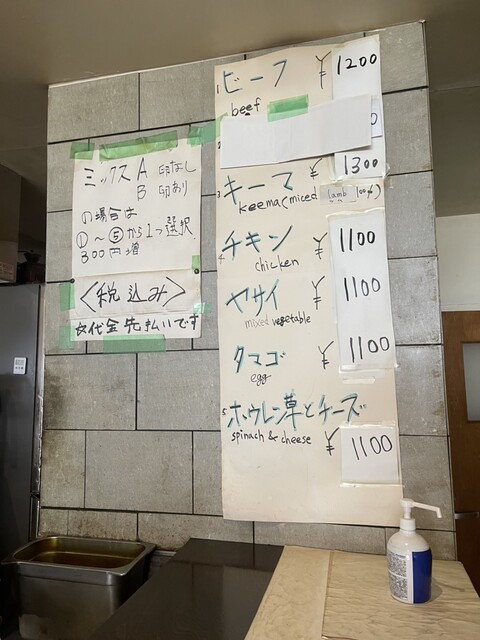 ミックス A 卵なし
B 卵あり
の場合は
①〜⑤から1つ選択
300円増
〈税込み〉
お代金先払いです
1 ビーフ ¥ 1200
beef
0
2
3 キーマ ¥ 1300
keema (mixed lamb 100%)
4 チキン ¥ 1100
chicken
ヤサイ ¥ 1100
mixed vegetable
タマゴ ¥ 1100
egg
5 ホウレン草とチーズ
spinach & cheese ¥ 1100